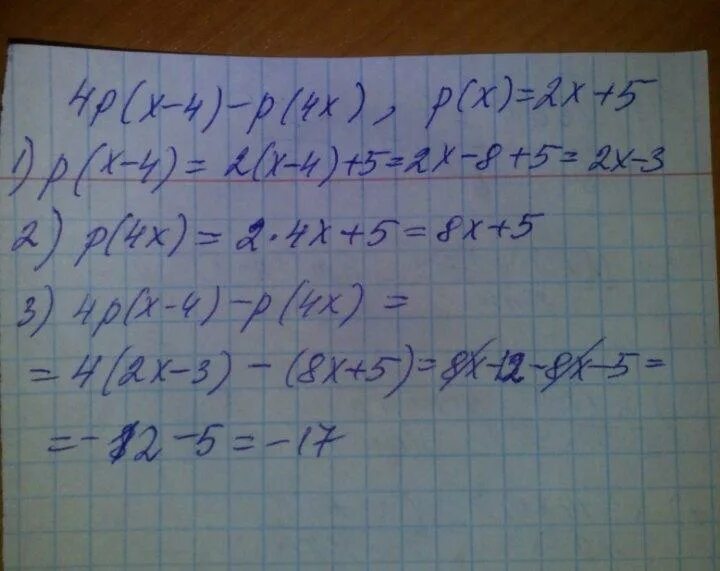 4p(x-4)-p(4x), p(x)=2x+5
1) p(x-4)= 2(x-4)+5=2x-8+5=2x-3
2) p(4x)=2·4x+5=8x+5
3) 4p(x-4)-p(4x)=
=4(2x-3)-(8x+5)=8x-12-8x-5=
=-12-5=-17